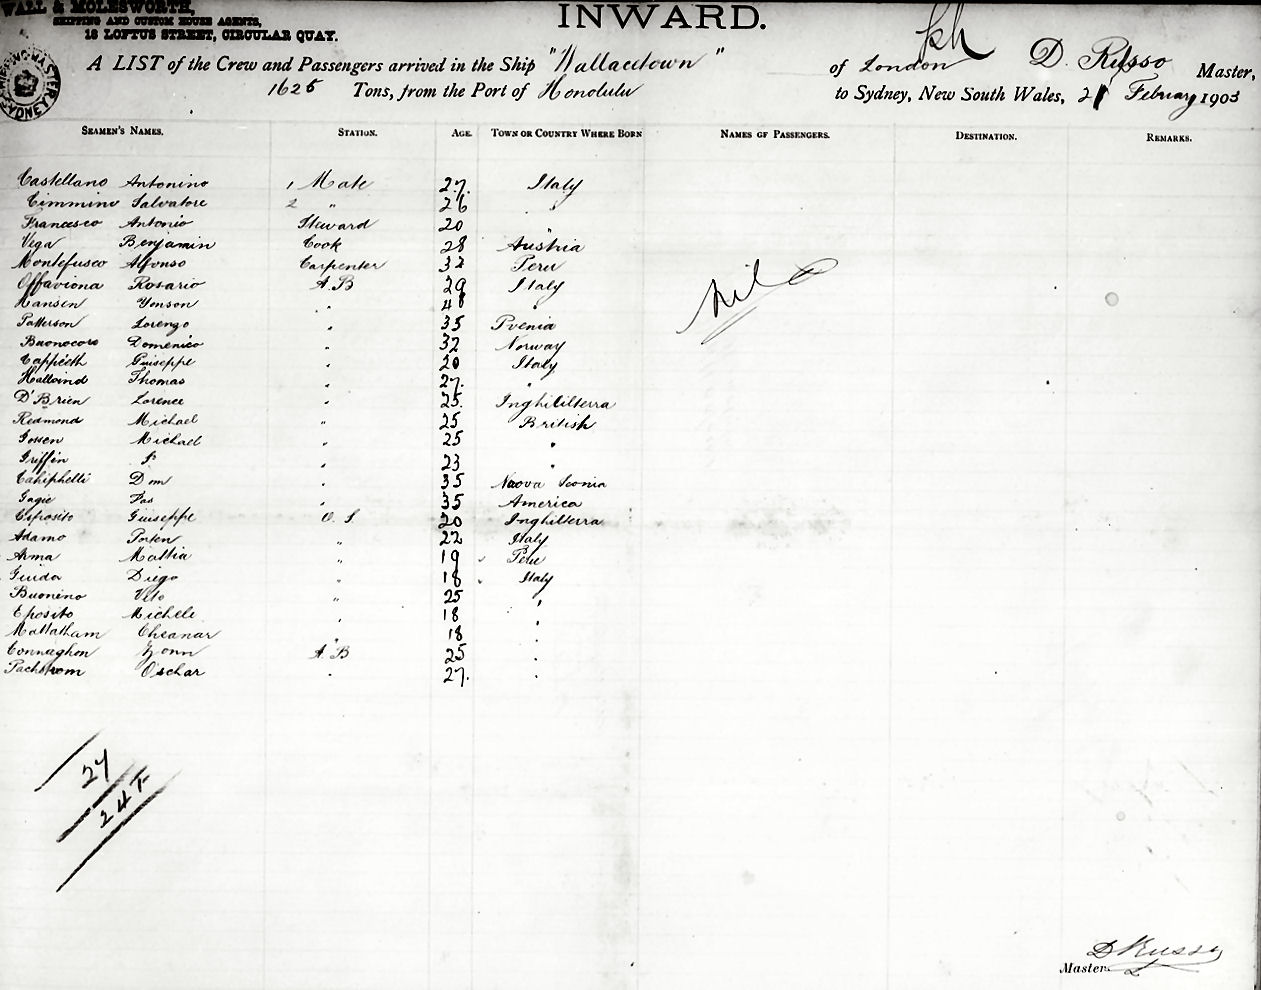 WALL & MOLESWORTH,
SHIPPING AND CUSTOM HOUSE AGENTS,
18 LOFTUS STREET, CIRCULAR QUAY.
INWARD.
A LIST of the Crew and Passengers arrived in the Ship "Wallacetown" of London D. Russo Master,
1625 Tons, from the Port of Honolulu to Sydney, New South Wales, 21 February 1903
SEAMEN'S NAMES. STATION. AGE. TOWN OR COUNTRY WHERE BORN NAMES OF PASSENGERS. DESTINATION. REMARKS.
Castellano Antonino 1 Mate 27. Italy
Cimmino Salvatore 2 " 26 "
Francesco Antonio Steward 20 "
Vega Benjamin Cook 28 Austria
Montefusco Alfonso Carpenter 32 Peru
Offaviona Rosario A.B 29 Italy
Hansen Yonson " 48 "
Patterson Lorenzo " 35
Buonocore Domenico " 32 Norway
Guiseppe " 20 Italy
Thomas " 27. "
O'Brien Lorence " 25. Inghililterra
Redmond Michael " 25 British
Michael " 25 "
Griffin P " 23 "
Dom " 35 Nuova Sconia
" 35 America
Esposito Guiseppe O. S. 20 Inghilterra
Adamo " 22 Italy
Arma Mattia " 19 Peru
Guida Diego " 18 Italy
Buonino Vito " 25 "
Eposito Michele " 18 "
Mattatham Cheanar " 18 "
Connaghon Yonn A. B 25 "
Pachstrom Oschar " 27. "
Nil
27
24 F
D Russo
Master.